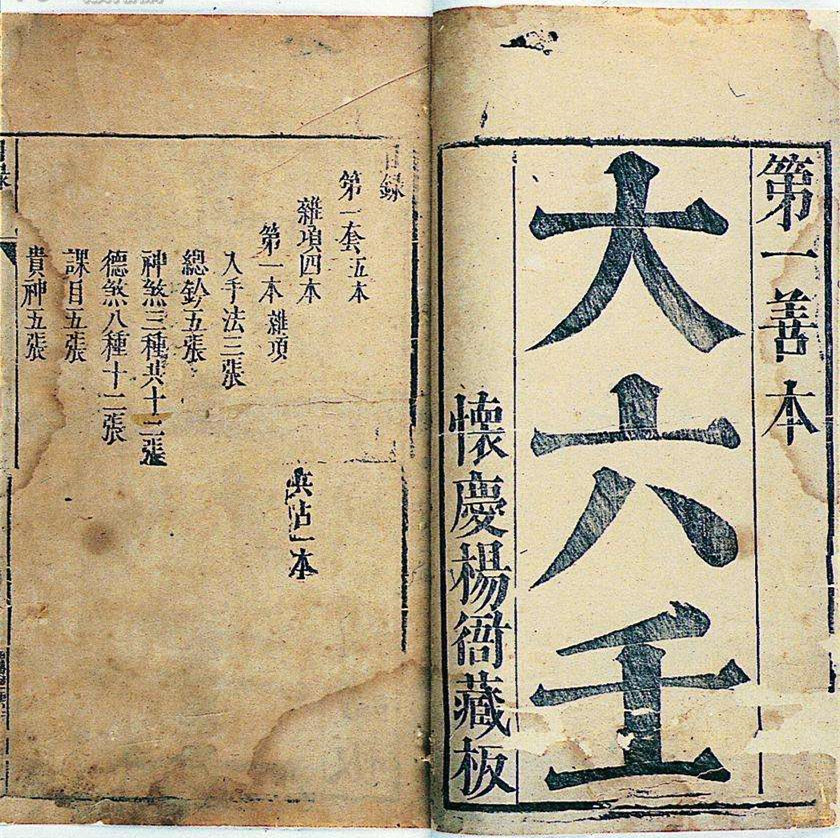 第一善本
大六壬
懷慶楊衙藏板
目錄
第一套五本
雜項四本
兵占一本
第一本雜項
入手法三張
總鈐五張
神煞三種共十二張
德煞八種十二張
課目五張
貴神五張